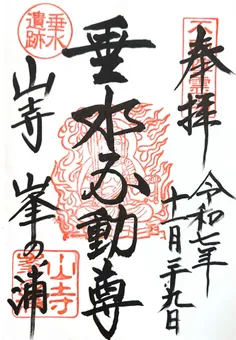 奉拝
令和七年
十一月二十九日
垂水不動尊
垂水
遺跡
山寺 峯の浦
山寺